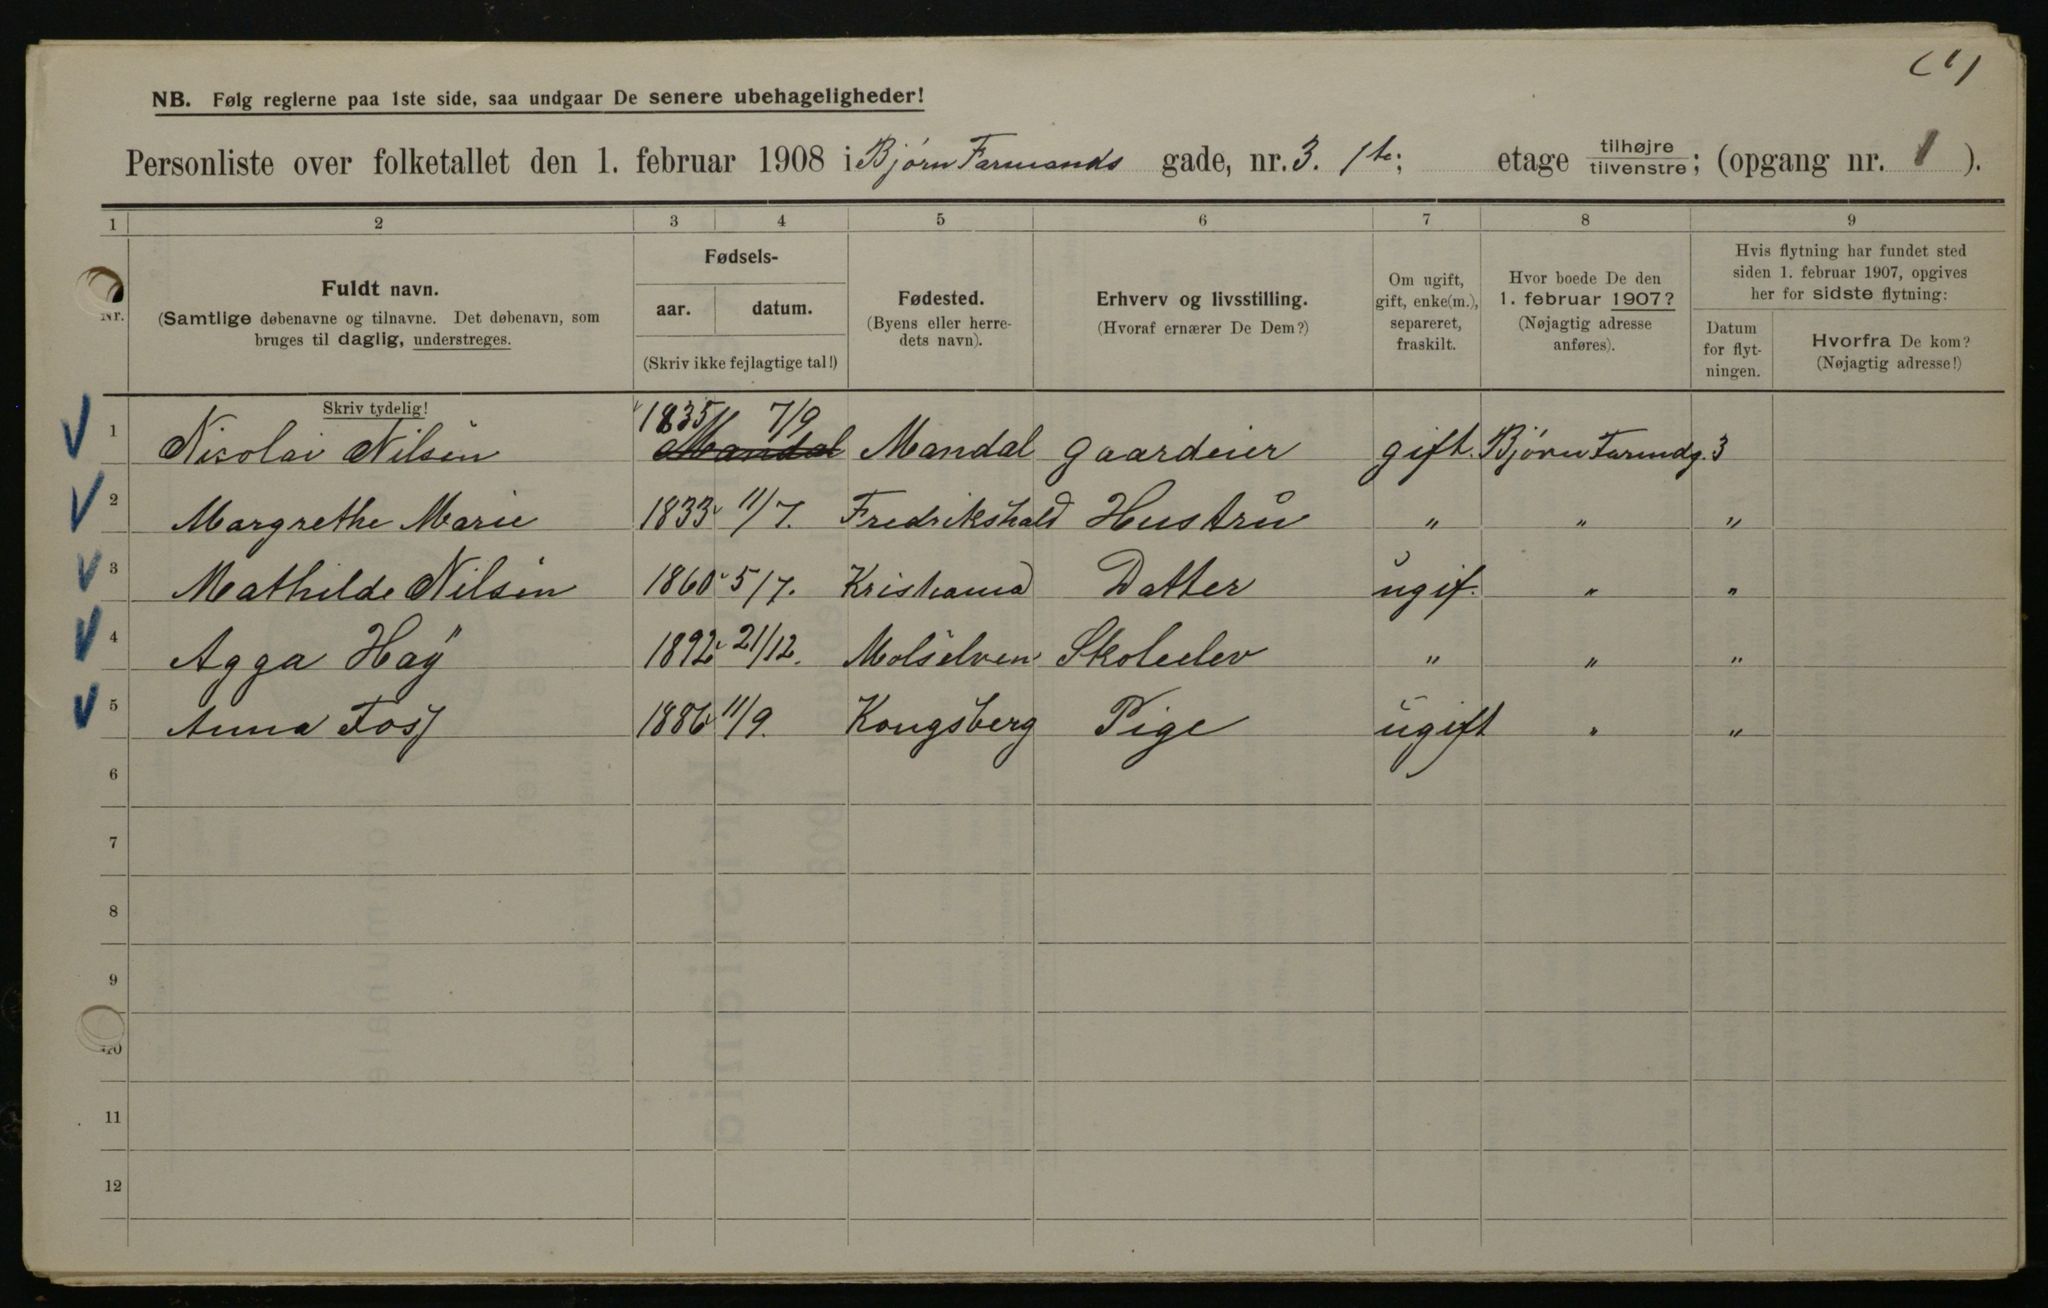 (1)
NB. Følg reglerne paa 1ste side, saa undgaar De senere ubehageligheder!
Personliste over folketallet den 1. februar 1908 i Bjørn Farmands gade, nr. 3. 1te; etage tilhøjre/tilvenstre; (opgang nr. 1).
1 2 3 4 5 6 7 8 9
Nr.
Fuldt navn.
(Samtlige døbenavne og tilnavne. Det døbenavn, som
bruges til daglig, understreges.
Fødsels-
aar. datum.
(Skriv ikke fejlagtige tal!)
Fødested.
(Byens eller herre-
dets navn).
Erhverv og livsstilling.
(Hvoraf ernærer De Dem?)
Om ugift,
gift, enke(m.),
separeret,
fraskilt.
Hvor boede De den
1. februar 1907?
(Nøjagtig adresse
anføres).
Hvis flytning har fundet sted
siden 1. februar 1907, opgives
her for sidste flytning:
Datum
for flyt-
ningen.
Hvorfra De kom?
(Nøjagtig adresse!)
Skriv tydelig!
1 Nicolai Nilsen 1835 7/9 Mandal Mandal Gaardeier gift. Bjørn Farmdg. 3
2 Margrethe Marie 1833 11/7. Fredrikshald Hustru " " "
3 Mathilde Nilsen 1860 5/7. Kristiania Datter ugif. " "
4 Agga Høÿ 1892 21/12. Molselven Skoleelev " " "
5 Anna Foss 1886 11/9. Kongsberg Pige ugift " "
6
7
8
9
10
11
12